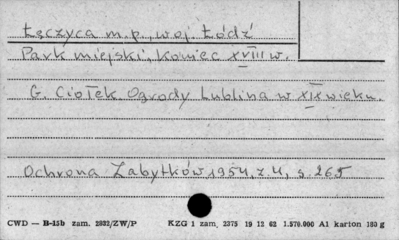 Łęczyca m.p., woj. Łódź
Park miejski, koniec XVIII w.
G. Ciołek Ogrody Lublina w XIX wieku.
Ochrona Zabytków 1954, z. 4, s. 265
CWD — B-15b zam. 2932/ZW/P KZG 1 zam. 2375 19 12 62 1.570.000 A1 karton 180 g